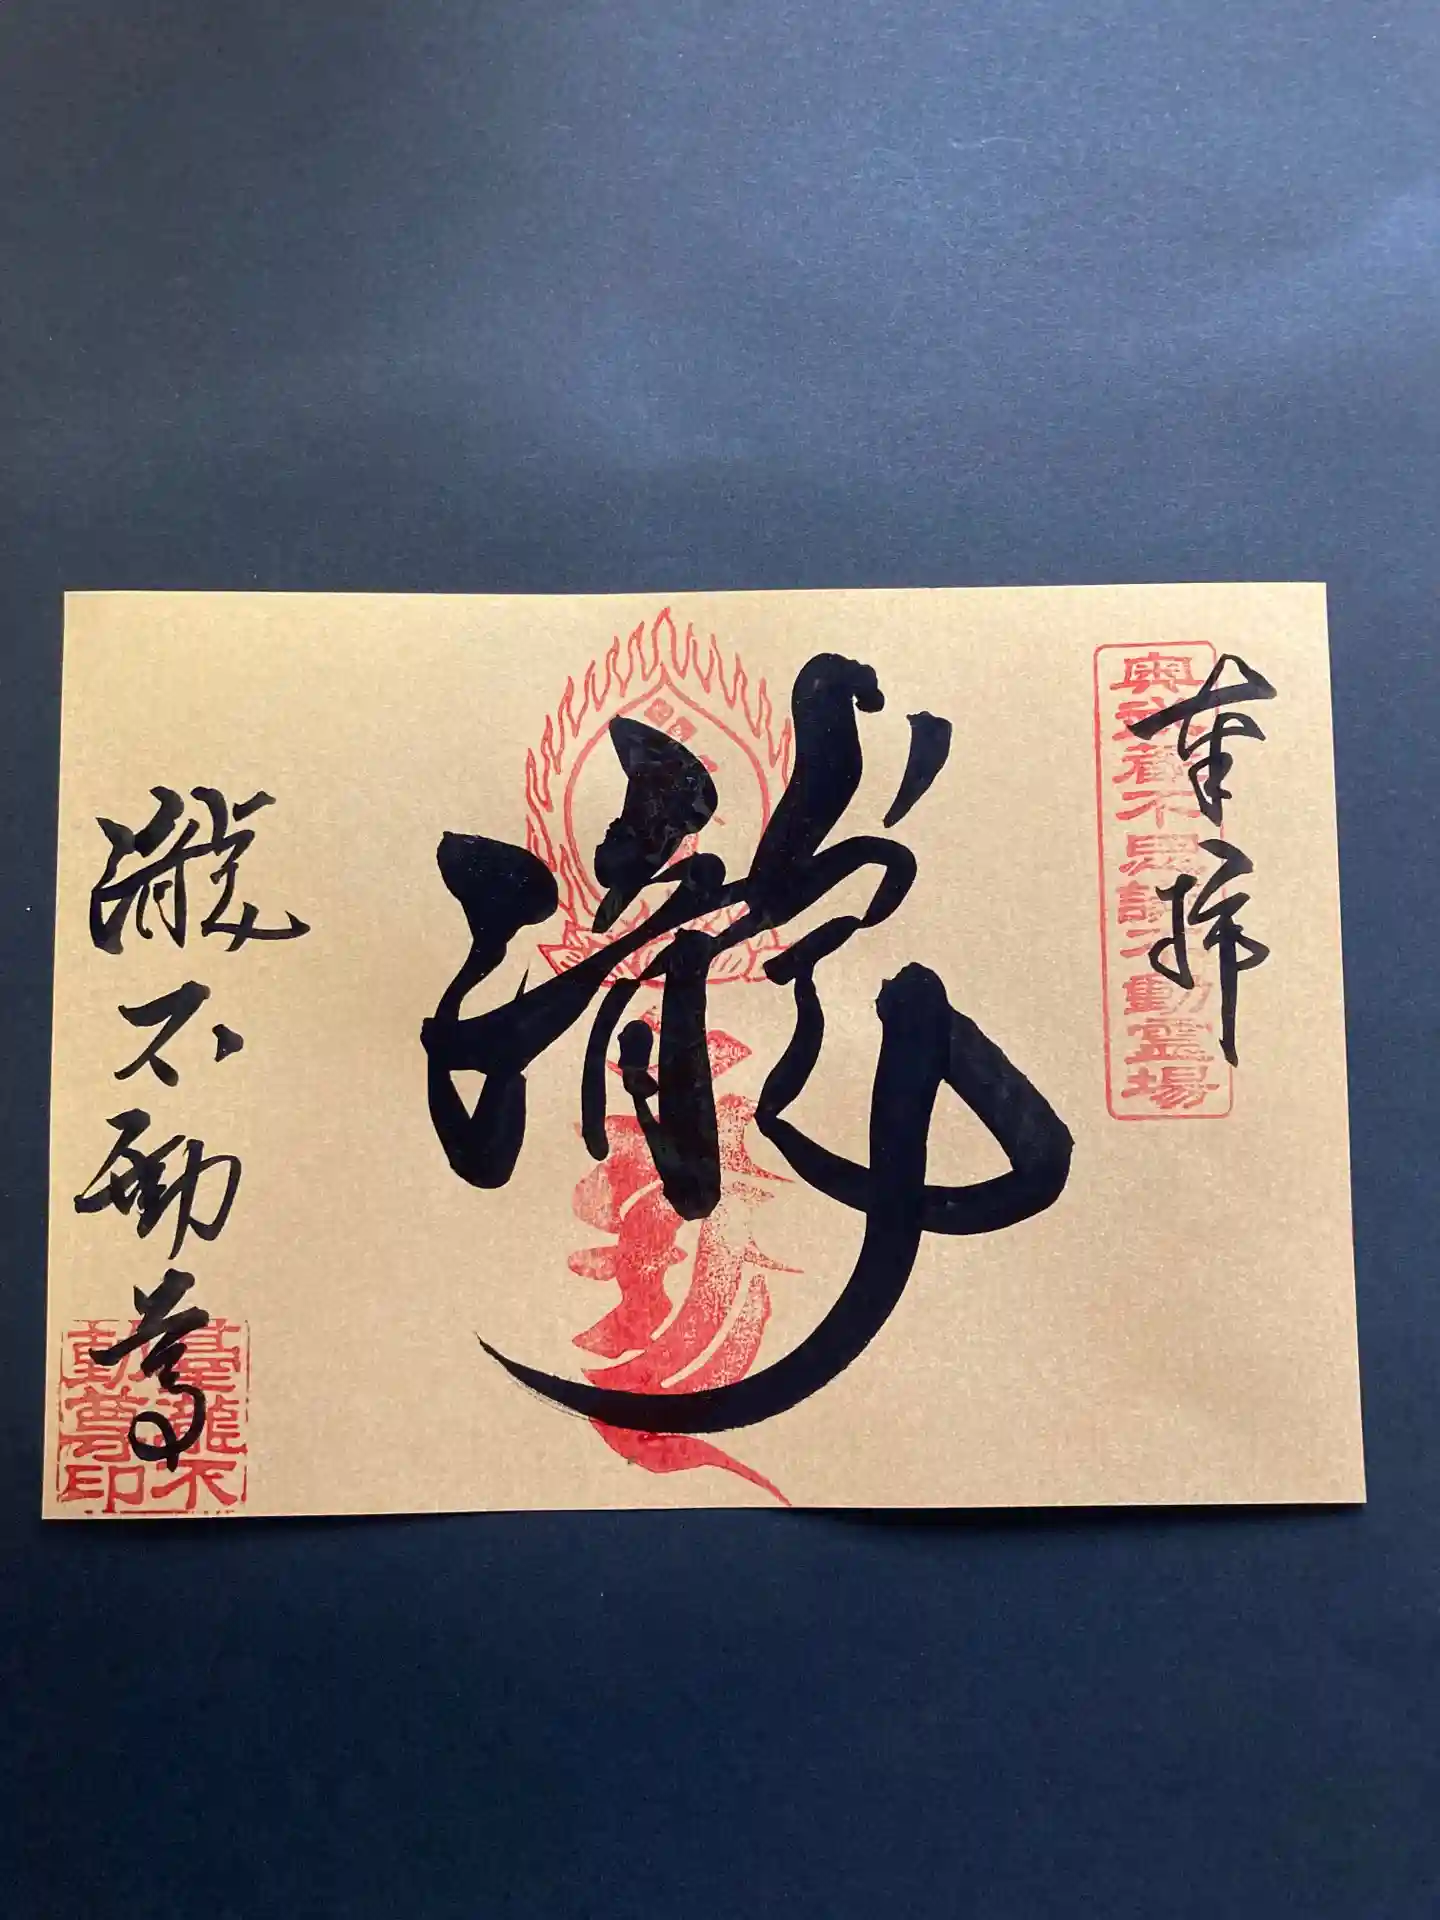 奉拝
奥武蔵不思議不動霊場
瀧
瀧不動尊
瀧不
動尊印